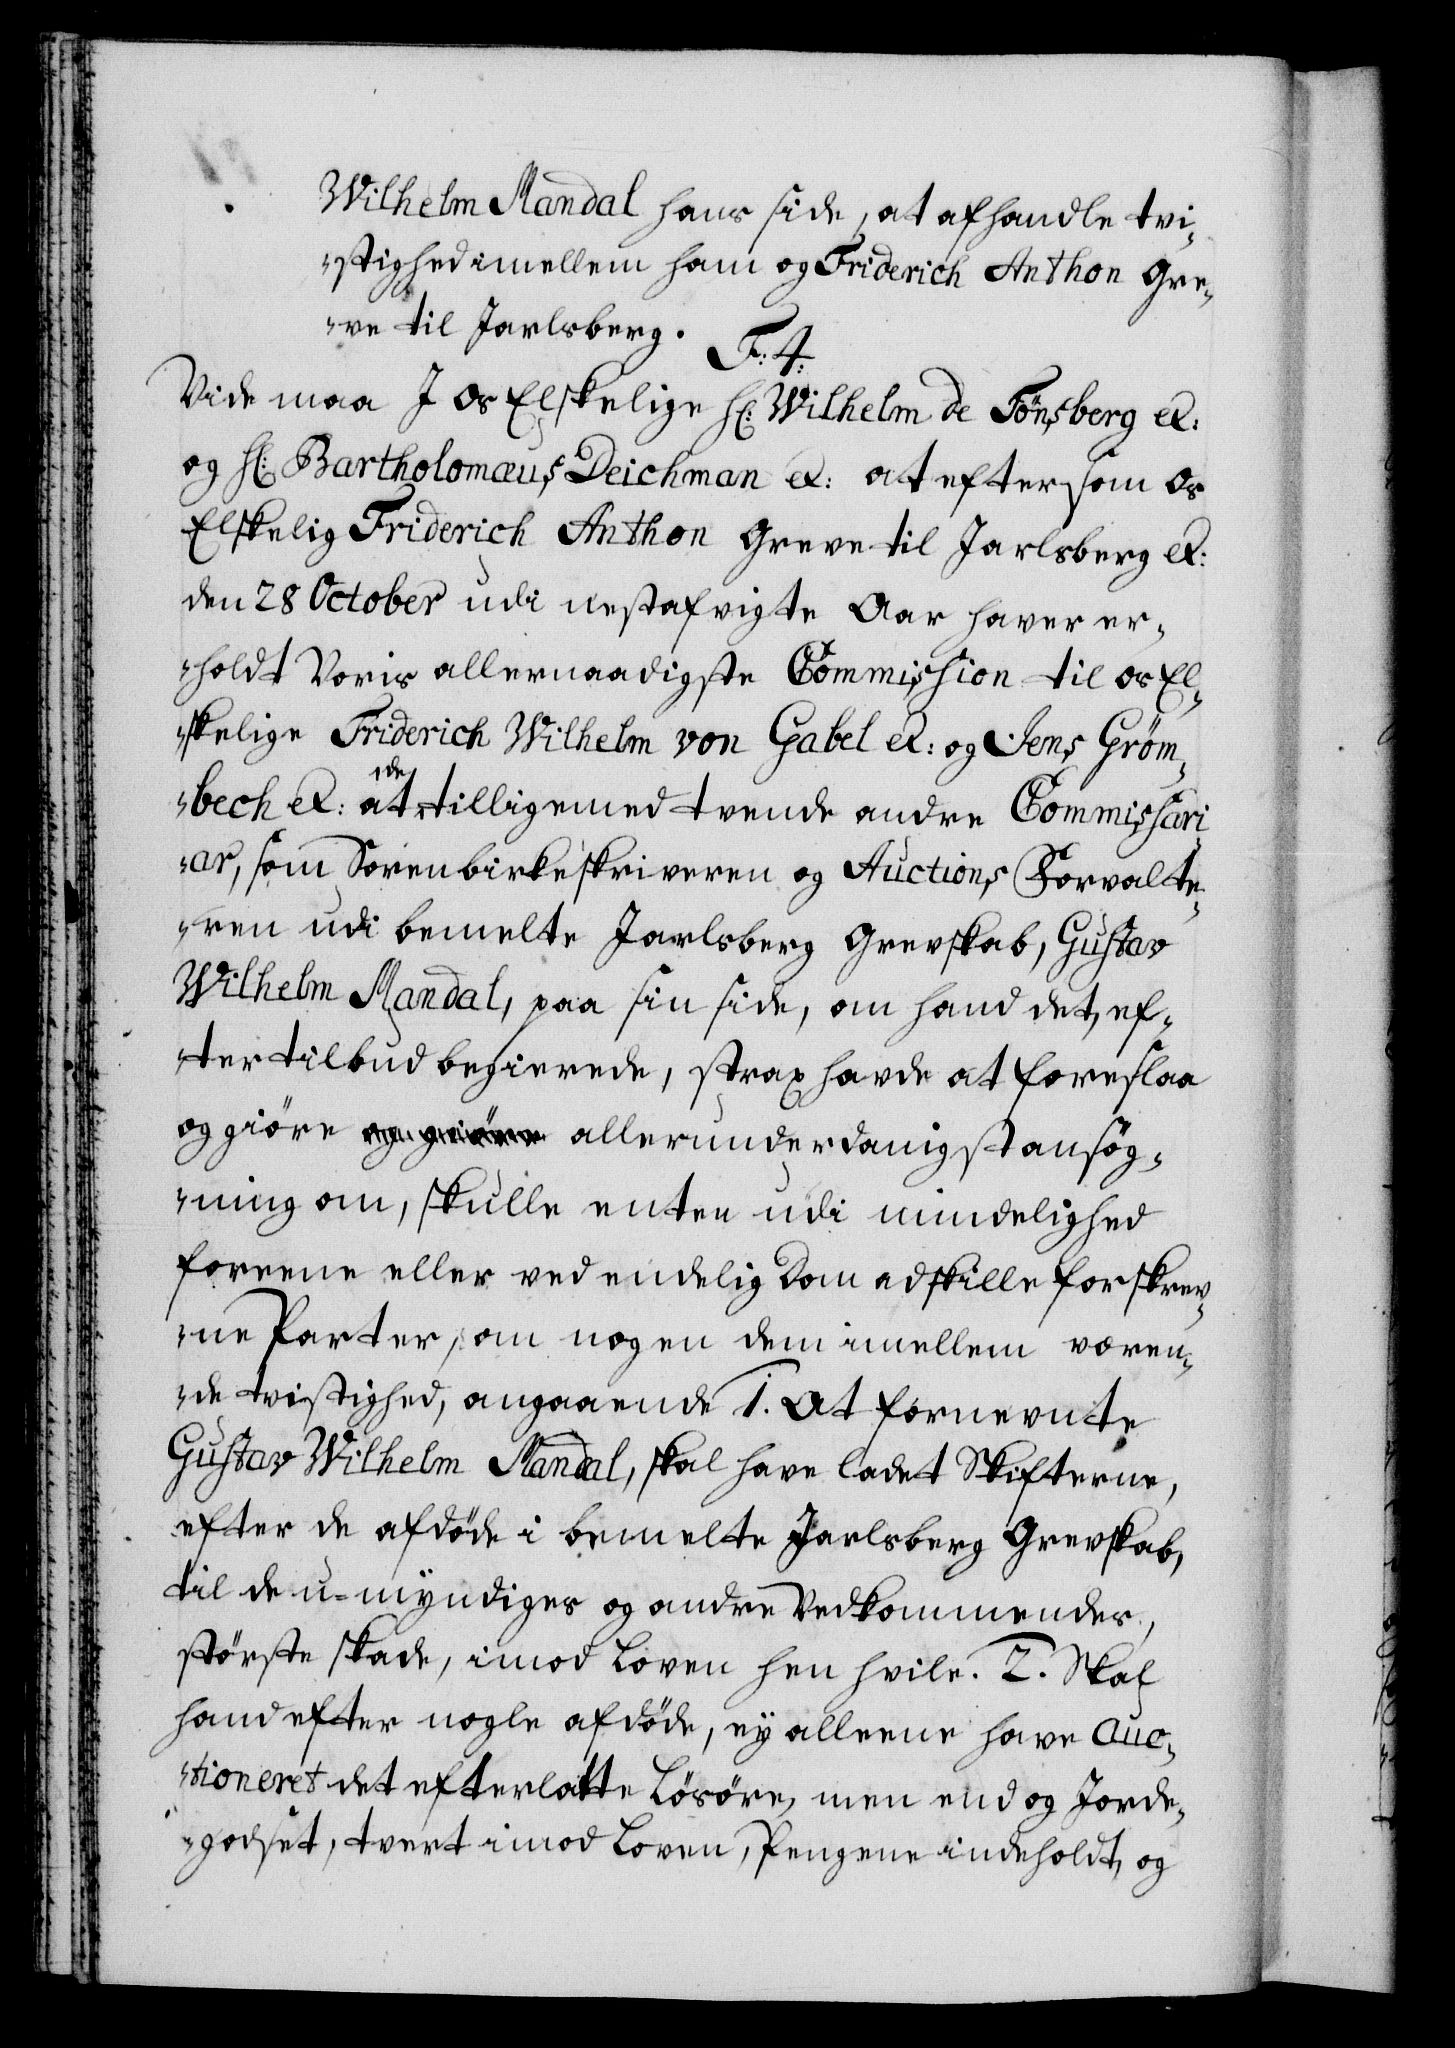 Wilhelm Mandal hans side, at afhandle tvi-
-stighed imellem ham og Friderich Anthon Gre-
-ve til Jarlsberg.
F: 4:
Vide maa J Os Elskelige H: Wilhelm de Tönsberg &:
og H: Bartholomæus Deichman &: at eftersom Os
Elskelig Friderich Anthon Greve til Jarlsberg &:
den 28 October udi nestafvigte Aar haver er-
-holdt Voris allernaadigste Commission til os El-
-skelige Friderich Wilhelm von Gabel &: og Jens Gröm-
-bech &: at de tilligemed tvende andre Commissari-
-ar, som Sorenbirkeskriveren og Auctions Forvalte-
-ren udi bemelte Jarlsberg Grevskab, Gustav
Wilhelm Mandal, paa sin side, om hand det, ef-
-ter tilbud begierede, strax havde at foreslaa
og giöre og giöre allerunderdanigst ansög-
-ning om, skulle enten udi mindelighed
foreene eller ved endelig Dom adskille forskrev-
-ne Parter, om nogen dem imellem væren-
-de tvistighed, angaaende 1. At fornevnte
Gustav Wilhelm Mandal, skal have ladet Skifterne,
efter de afdöde i bemelte Jarlsberg Grevskab,
til de u-myndiges og andre Vedkommendes,
störste skade, imod Loven hen hvile. 2. Skal
hand efter nogle afdöde, ey alleene have auc-
-tioneret det efterlatte Lösöre, men end og Jorde-
-godset, tvert imod Loven, Pengene indeholdt, og